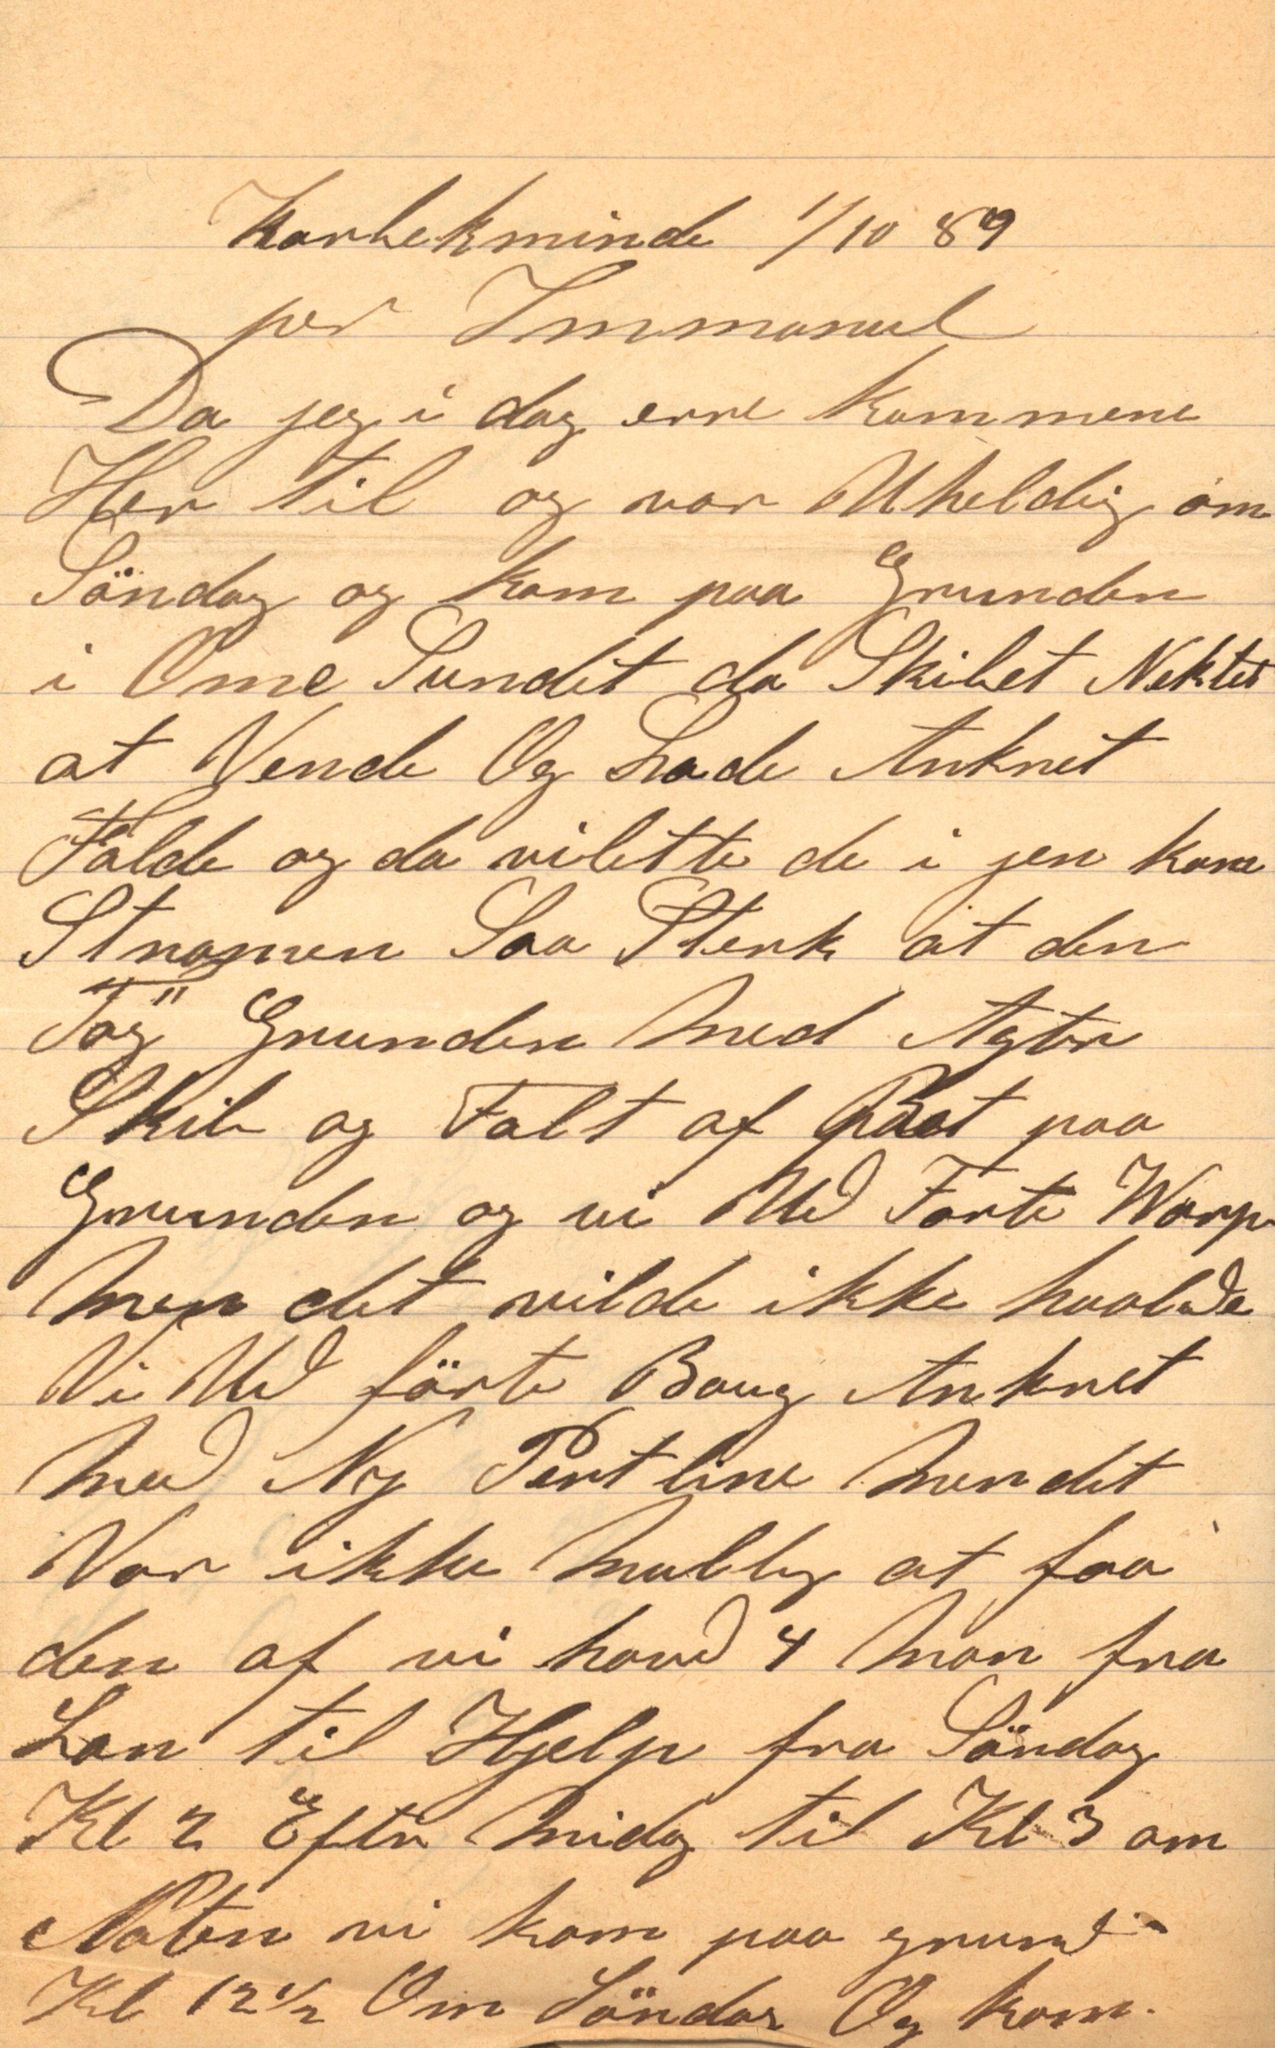 Karbekminde 1/10 89
per Immanuel
Da jeg i dag erre kommene
Her til og var Uheldig om
Söndag og kom paa Grunden
i Ome Sundet da Skibet Nektet
at Vende Og Lade Anknet
Falde og da vi lette de i jen kom
Stromen Saa Sterk at den
Tog Grunden med Agter
Skib og Falt af paa
Grunden og vi Ud Förte Warp
Men det vilde ikke haalde
Vi Ud förte Boug Anknet
med Ny Pertline men det
Var ikke mulig at faa
den af vi havd 4 Man fra
Lan til Hjelp fra Söndag
Kl 2 Efter midag til Kl 3 om
Naten vi kom paa grund
Kl 12 1/2 Om Söndag Og kom